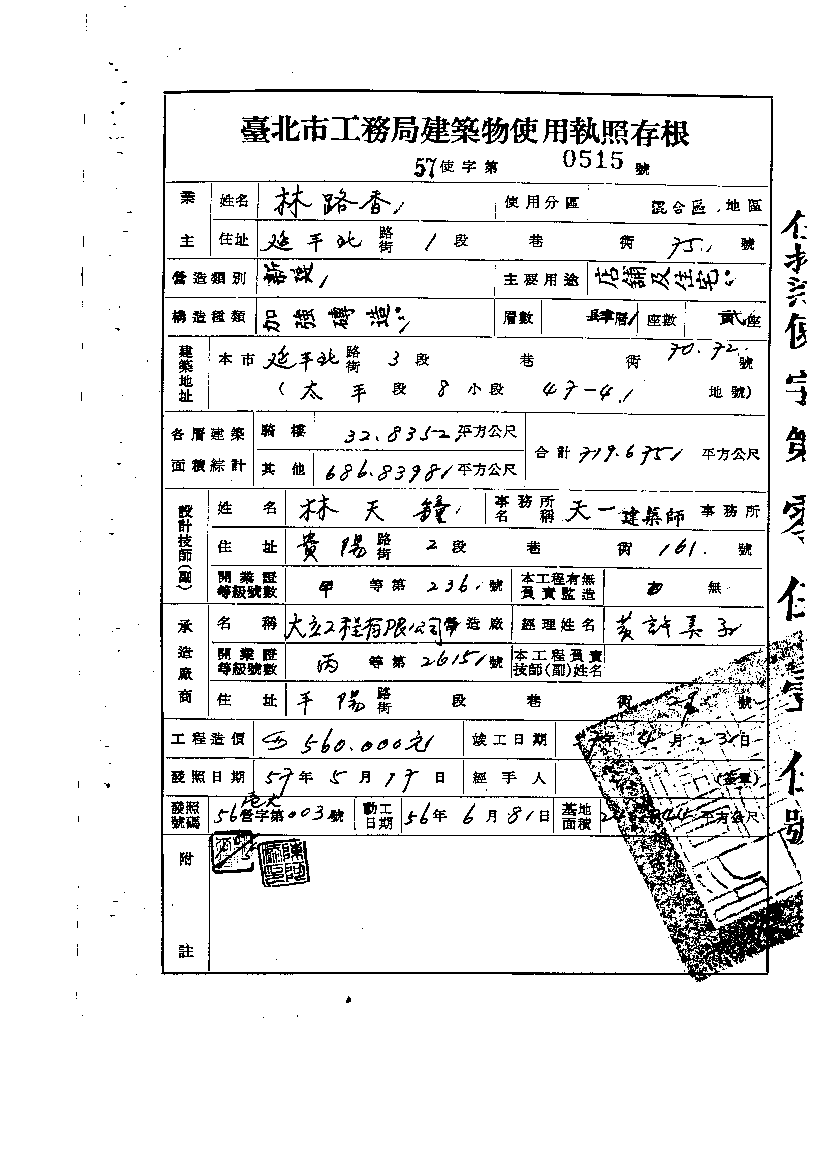 臺北市工務局建築物使用執照存根
57使字第 0515 號
業主 姓名 林路香 使用分區 混合區 地區
住址 延平北 路街 1 段 巷 衖 75 號
營造類別 新建 主要用途 店舖及住宅
構造種類 加強磚造 層數 層 座數 貳座
建築地址 本市 延平北 路街 3 段 巷 衖 70.72. 號
(太平 段 8 小段 47-4 地號)
各層建築面積綜計 騎樓 32.8352 平方公尺 合計 719.675 平方公尺
其他 686.8398 平方公尺
設計技師(副) 姓名 林天鐘 事務所名稱 天一建築師 事務所
住址 貴陽 路街 2 段 巷 衖 161. 號
開業證等級號數 甲 等第 236 號 本工程有無負責監造 無
承造廠商 名稱 大立工程有限公司 營造廠 經理姓名 黃許美
開業證等級號數 丙 等第 2615 號 本工程負責技師(副)姓名
住址 平陽 路街 段 巷 衖 號
工程造價 560.000元 竣工日期 57年 4月 23日
發照日期 57年 5月 17日 經手人 (簽章)
發照號碼 56營字第003號 動工日期 56年 6月 8日 基地面積 平方公尺
附註
使字第零